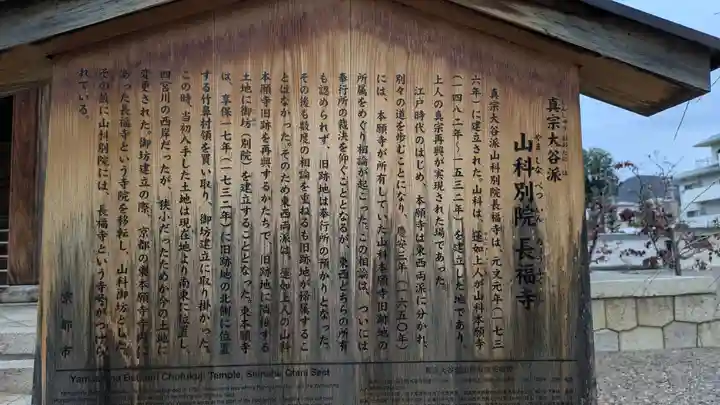 真宗大谷派
山科別院長福寺
やましなべついん
真宗大谷派山科別院長福寺は、元文元年(一七三
六年)に建立された。山科は、蓮如上人が山科本願寺
(一四八二年〜一五三二年)を建立した地であり、
上人の真宗再興が実現された場であった。
江戸時代のはじめ、本願寺は東西両派に分かれ、
別々の道を歩むことになり、慶安三年(一六五〇年)
には、本願寺が所有していた山科本願寺旧跡地の
所属をめぐり相論が起こった。この相論は、ついには
奉行所の裁決を仰ぐこととなるが、東西どちらの所有
も認められず、旧跡地は奉行所の預かりとなった。
その後も数度の相論を重ねるも旧跡地が帰属するこ
とはなかった。そのため東西両派は、蓮如上人の山科
本願寺旧跡を再興するかたちで、旧跡地に隣接する
土地に御坊(別院)を建立することとなった。東本願寺
は、享保十七年(一七三二年)に旧跡地の北側に位置
する竹鼻村領を買い取り、御坊建立に取り掛かった。
この時、当初入手した土地は現在地より南東に位置し、
四宮川の西岸だったが、狭小だったため今の土地に
変更された。御坊建立の際、京都の東本願寺寺内に
あった長福寺という寺院を移転し、山科御坊とした。
その為に山科別院には、長福寺という寺号がつけら
れている。
京都市
Yamashina Betsuin Chofukuji Temple, Shinshu Otani Sect